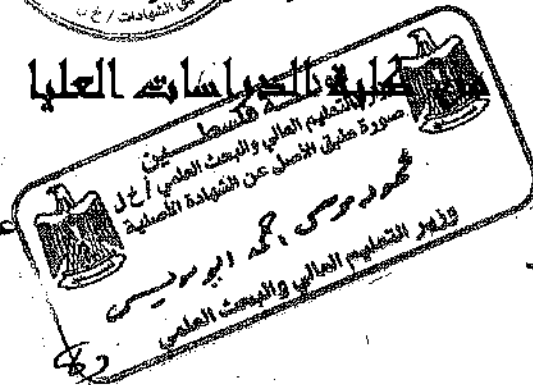 تصديق الشهادات / خ ب
كلية الدراسات العليا
دولة فلسطين
وزارة التعليم العالي والبحث العلمي / خ ل
صورة طبق الأصل عن الشهادة الأصلية
محمود موسى أحمد أبو
وزير التعليم العالي والبحث العلمي